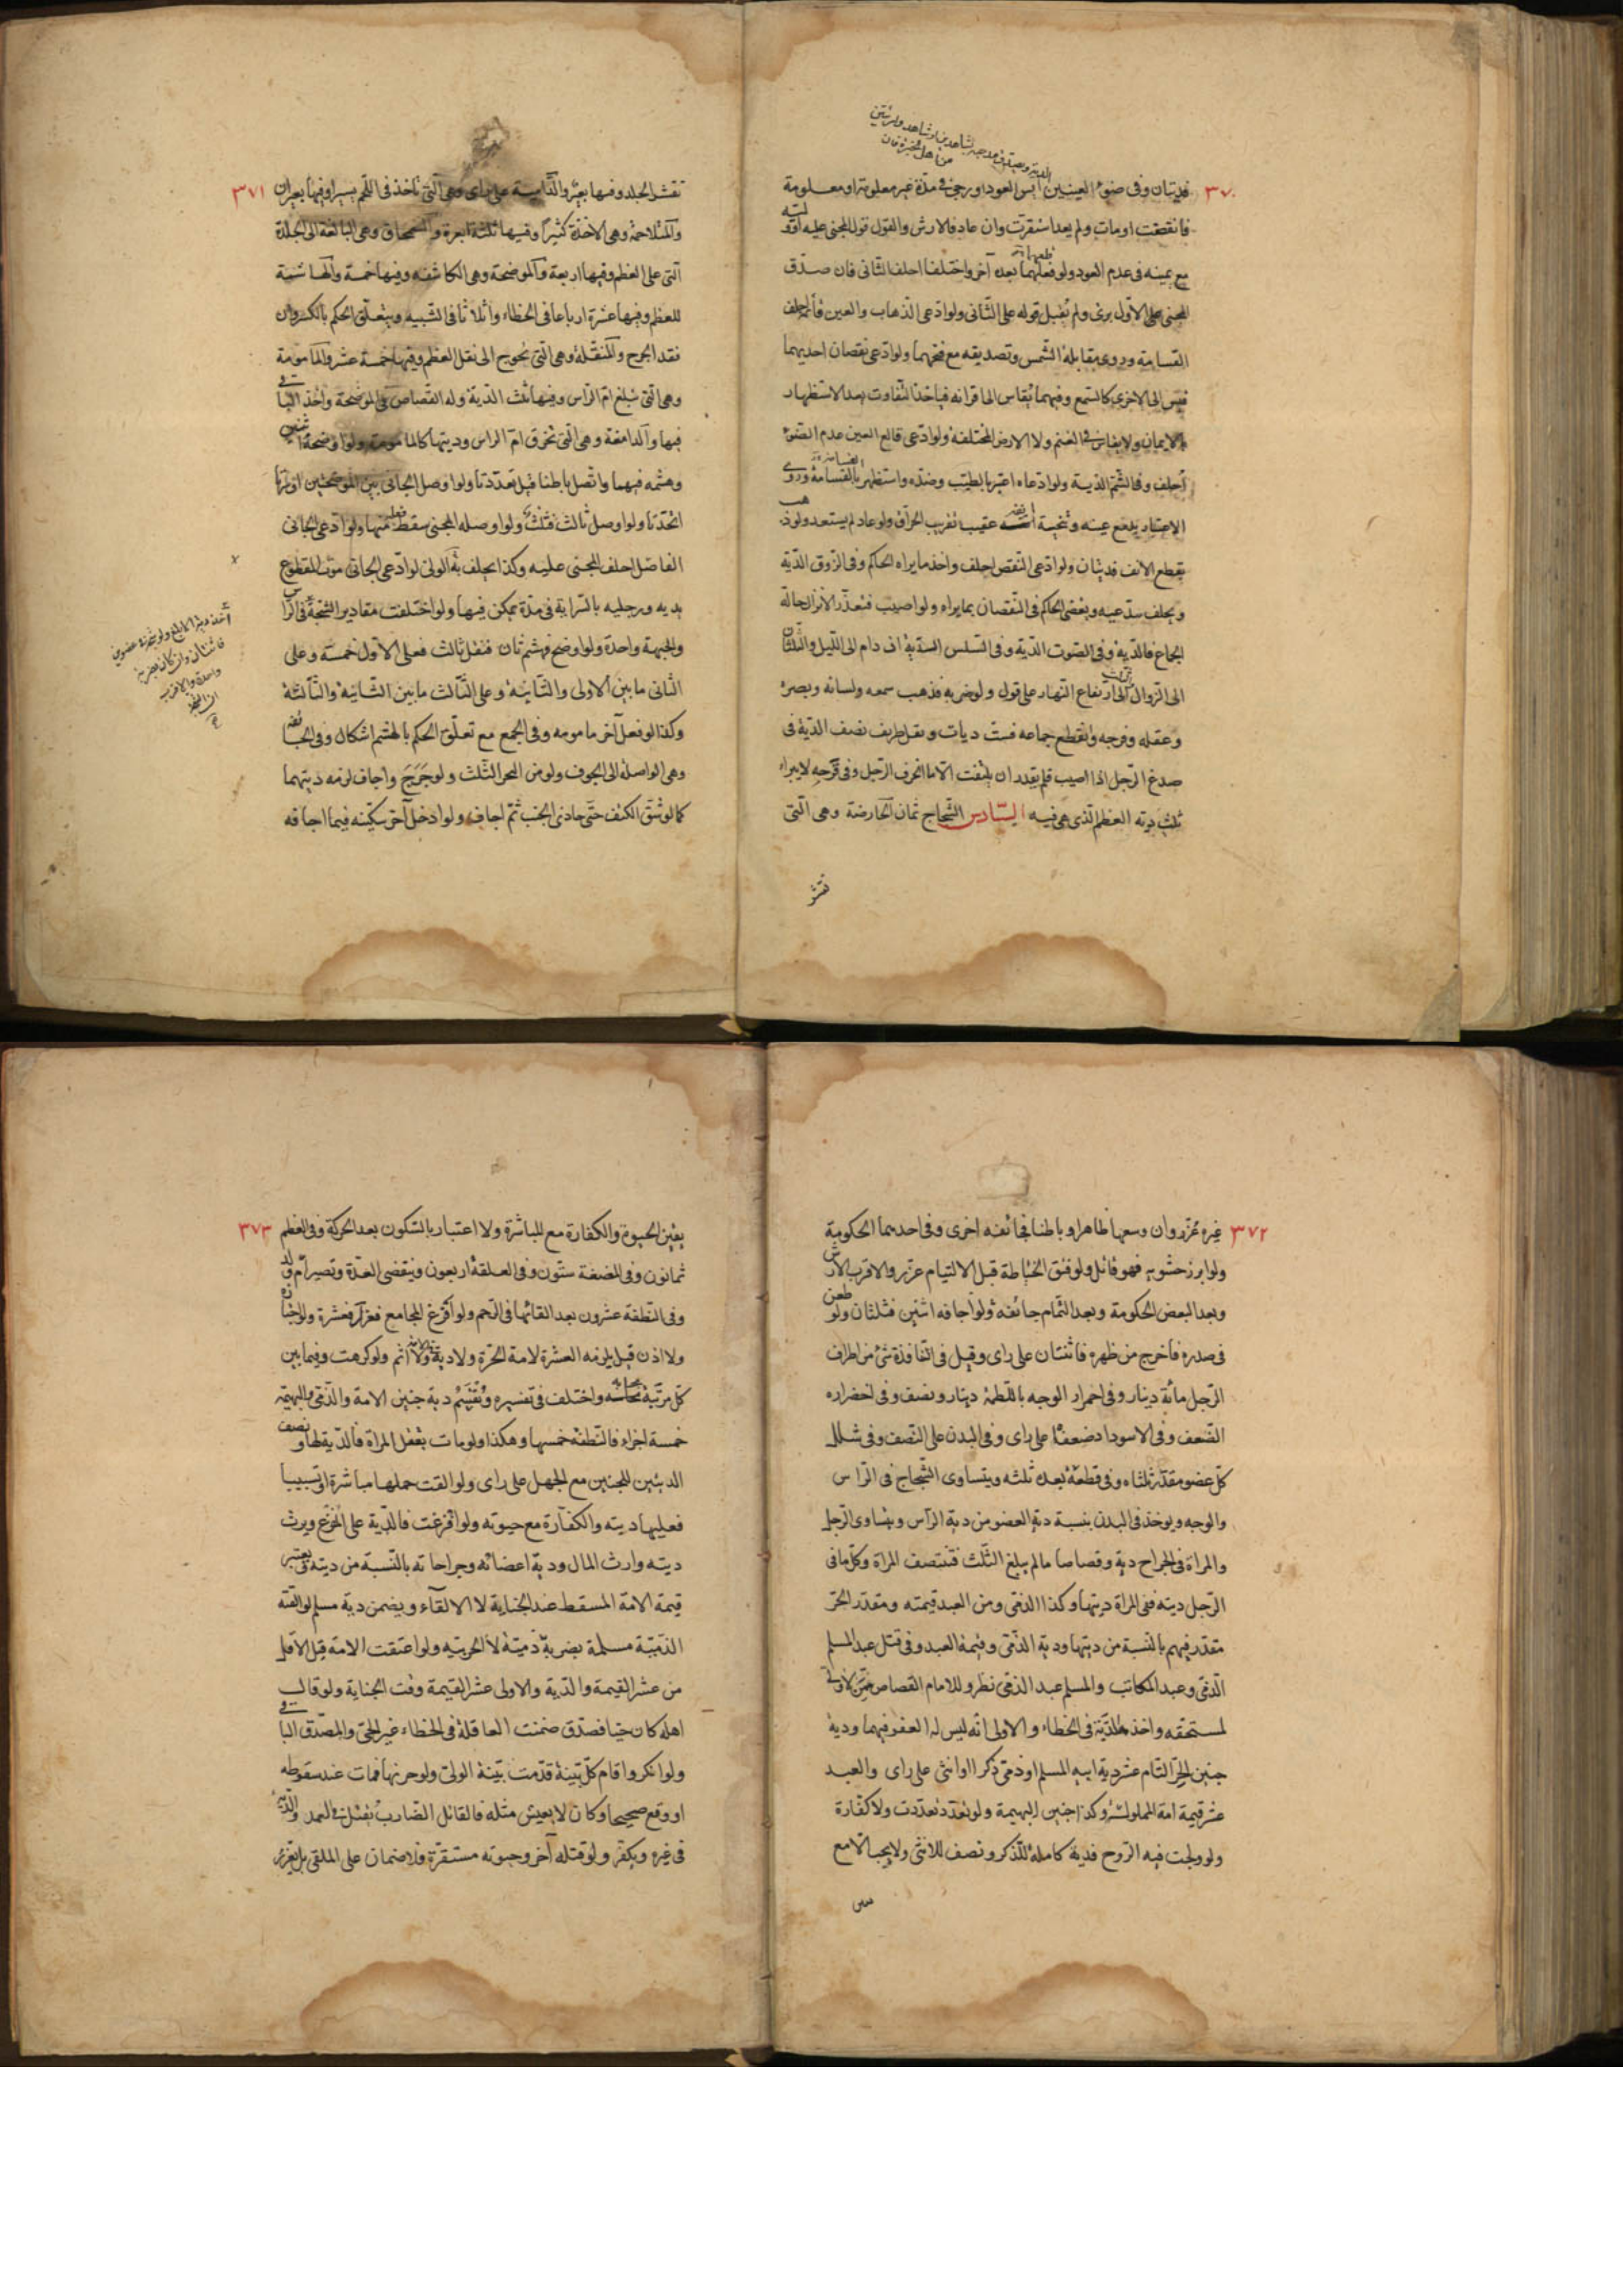 ٣٧٠
فديتان وفى ضوء العينين الدية ان ايس العود او رجى فى مدّة غير معلومة او معلومة
فانقضت او مات ولم يعد استقرّت وان عاد فالارش والقول قول المجنى عليه
مع يمينه فى عدم العود ولو قلعهما بعد آخر واختلفا احلف الثانى فان صدّق
المجنى على الاوّل برئ ولم يقبل قوله على الثّانى ولو ادّعى الذّهاب والعين قائمة احلف
القسامة وروى مقابلة الشّمس وتصديقه مع فتحهما ولو ادّعى نقصان احديهما
قيس الى الاخرى كالسّمع وفيهما يقاس الى اقرانه فياخذ التّفاوت بعد الاستظهار
بالايمان ولا يقاس فى الغيم ولا الارض المختلفة ولو ادّعى قالع العين عدم الضّوء
احلف وفى الشّم الدّية ولو ادّعاه اعتبر بالطيّب وضدّه واستظهر بالقسامة وروى
الاعتبار بدمع عينه وتنحية انفه عقيب تقريب الحرّاق ولو عاد لم يستعد ولو ذهب
بقطع الانف فديتان ولو ادّعى النّقص احلف واخذ ما يراه الحاكم وفى الذّوق الدّية
ويحلف مدّعيه ويقضى الحاكم فى النّقصان بما يراه ولو اصيب فتعذّر الانزال حالة
الجماع فالدّية وفى الصّوت الدّية وفى السّلس الدّية ان دام الى اللّيل والثّلثان
الى الزّوال والثلث الى ارتفاع النّهار على قول ولو ضربه فذهب سمعه ولسانه وبصره
وعقله وفرجه وانقطع جماعه فستّ ديات ونقل ظريف نصف الدّية فى
صدغ الرّجل اذا اصيب فلم يقدر ان يلتفت الّا ما انحرف الرّجل وفى قرحه لا يبراء
ثلث دية العظم الّذى هى فيه السّادس الشّجاج ثمان الحارصة وهى الّتى
تقشر
٣٧١
تقشر الجلد وفيها بعير والدّامية على راى وهى الّتى تأخذ فى اللّحم يسيرا وفيها بعيران
والمتلاحمة وهى الآخذة كثيرا وفيها ثلثة ابعرة والسّمحاق وهى البالغة الى الجلدة
الّتى على العظم وفيها اربعة والموضحة وهى الكاشفه وفيها خمسة والهاشمة
للعظم وفيها عشرة ارباعا فى الخطاء واثلاثا فى الشّبيه ويتعلّق الحكم بالكسر وان
فقد الجرح والمنقّلة وهى الّتى تحوج الى نقل العظم وفيها خمسة عشر والمأمومة
وهى الّتى تبلغ امّ الرّاس وفيها ثلث الدّية وله القصاص فى الموضحة واخذ الباقى
فيها والدامغة وهى الّتى تخرق امّ الراس وديتها كالمامومة ولو اوضحه اثنتين
وهشمه فيهما واتّصل باطنا قيل تعدّدتا ولو اوصل الجانى بين الموضحتين او سرتا
اتّحدتا ولو اوصل ثالث فثلث ولو اوصله المجنى سقط فعله منها ولو ادّعى الجانى
الفاصل احلف المجنى عليه وكذا يحلف الولى لو ادّعى الجانى موت المقطوع
يديه ورجليه بالسّراية فى مدّة يمكن فيها ولو اختلفت مقادير الشّجّة فى الرّاس
والجبهة واحدة ولو اوضح فهشم ثان فنقل ثالث فعلى الاوّل خمسة وعلى
الثّانى ما بين الاولى والثّانية وعلى الثّالث ما بين الثّانية والثّالثة
وكذا لو فعل آخر مامومه وفى الجمع مع تعلّق الحكم بالهشم اشكال وفى الجائفة
وهى الواصلة الى الجوف ولو من النحر الثّلث ولو جرح واجاف لزمه ديتهما
كما لو شقّ الكتف حتّى حاذى الجنب ثمّ اجاف ولو ادخل آخر سكّينه فيما اجافه
٣٧٢
غيره عزّر وان وسعها ظاهرا او باطنا فجائفه اخرى وفى احديهما الحكومة
ولو ابرز حشوبه فهو قاتل ولو فتق الخياطة قبل الالتيام عزّر والاقرب الارش
وبعد البعض الحكومة وبعد التّمام جائفه ولو اجافه اثنين فثلثان ولو طعن
فى صدره فأخرج من ظهره فاثنتان على راى وقيل فى النّافذة فى شئ من اطراف
الرّجل مائة دينار وفى احمرار الوجه باللّطمة دينار ونصف وفى اخضراره
الضّعف وفى الاسوداد ضعفه على راى وفى البدن على النّصف وفى شلل
كلّ عضو مقدّر ثلثاه وفى قطعه بعده ثلثه ويتساوى الشّجاج فى الرّاس
والوجه ويوخذ فى البدن بنسبة دية العضو من دية الرّأس ويتساوى الرّجل
والمراة فى الجراح دية وقصاصا مالم يبلغ الثّلث فتنتصف المراة وكلّ ما فى
الرّجل ديته ففى المراة ديتها وكذا الذمّى ومن العبد قيمته ومقدّر الحرّ
مقدّر فيهم بالنّسبة من ديتها ودية الذّمّى وقيمة العبد وفى قتل عبد المسلم
الذّمّى وعبد المكاتب والمسلم عبد الذمّى نظر وللامام القصاص
لمستحقه واخذ الدّية فى الخطاء والاولى انّه ليس له العفو فيهما ودية
جنين الحرّ التّام عشر دية ابيه المسلم او ذمّى ذكرا او انثى على راى والعبد
عشر قيمة امه المملوكة وكذا جنين البهيمة ولو تعدّد تعدّدت ولا كفّارة
ولو ولجت فيه الرّوح فدية كاملة للذّكر ونصف للانثى ولا يجب الّا مع
٣٧٣
يقين الحيوة والكفارة مع المباشرة ولا اعتبار بالسّكون بعد الحركة وفى العظم
ثمانون وفى المضغة ستّون وفى العلقة اربعون وينقضى العدّة وتصير امّ ولد
وفى النّطفة عشرون بعد القائها فى الرّحم ولو افزع المجامع فعزل فعشرة ولو
ولا اذن قيل يلزمه العشرة لا مة الحرّة ولا دية ولا اثم ولو كرهت وفيما بين
كلّ مرتبة بحسابه واختلف فى تفسيره دية جنين الامة والذّمّى والبهيمه
خمسة اجزاء فالنّطفة خمسها وهكذا ولو مات بقتل المراة فالدّية لها ونصف
الديتين للجنين مع الجهل على راى ولو القت حملها مباشرة او تسبيبا
فعليها ديته والكفّارة مع حيوته ولو افزعت فالدّية على المفزع ويرث
ديته وارث المال ودية اعضائه وجراحاته بالنّسبة من ديته ويعتبر
قيمة الامة المسقط عند الجناية لا الالقآء ويضمن دية مسلم لو القته
الذّمّيّة مسلمة بضربة ذميّة لا الحربيّه ولو اعتقت الامة قيل الاقل
من عشر القيمة والدّية والاولى عشر القيمة وقت الجناية ولو قال
اهله كان حيا فصدّق ضمنت العاقلة فى الخطاء غير الحىّ والمصدّق الباقى
ولو انكر واقام كلّ بيّنة قدّمت بيّنة الولىّ ولو حرنها فمات عند سقوطه
او وقع صحيحا وكان لا يعيش مثله فالقاتل الضّارب يقتل فى العمد والدّية
فى غيره ويكفّر ولو قتله آخر وحيوته مستقرّة فلا ضمان على الملقى بل يعزّر